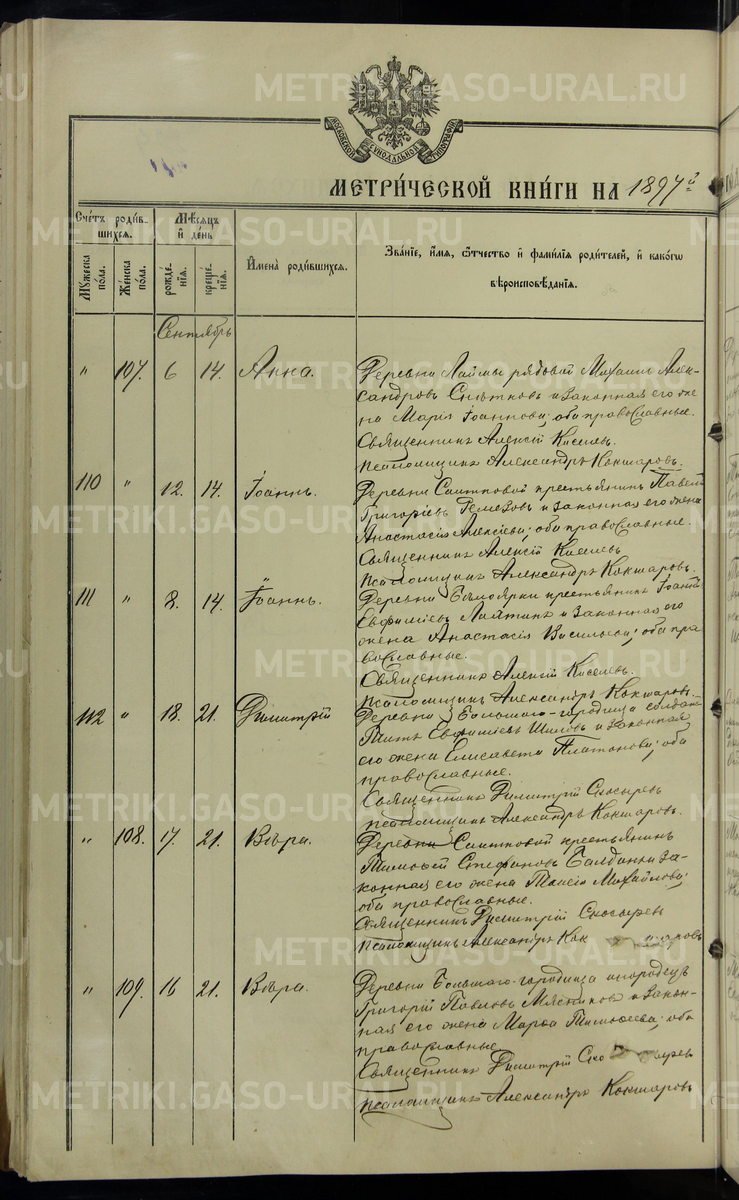 МОСКОВСКОЙ СѴНОДАЛЬНОЙ ТИПОГРАФІИ
МЕТРИ́ЧЕСКОЙ КНИ́ГИ НА 1897 й
Сче́тъ роди́вшихся.
Мѣ́сяцъ и҆ де́нь
И҆мена̀ роди́вшихся.
Зва́нїе, и҆́мя, ѻ҆́тчество и҆ фами́лїя роди́телей, и҆ како́гѡ вѣроисповѣ́данїя.
Мꙋ́жеска по́ла.
Же́нска по́ла.
рожде́нїя.
креще́нїя.
Сентябрь
" 107. 6 14. Анна.
Деревни Лаймы рядовой Михаилъ Алек-
сандровъ и законная его же
на Марія Іоаннова; оба православные.
Священникъ Алексій Киселевъ.
Псаломщикъ Александръ Кокшаровъ.
110 " 12. 14. Іоаннъ.
Деревни Саитковой крестьянинъ Павелъ
Григоріевъ Ремезовъ и законная его жена
Анастасія Алексіева; оба православные.
Священникъ Алексій Киселевъ
Псаломщикъ Александръ Кокшаровъ.
111 " 8. 14. Іоаннъ.
Деревни Бѣлоярки крестьянинъ Іоаннъ
Евфиміевъ и законная его
жена Анастасія Васильева; оба пра
вославные.
Священникъ Алексій Киселевъ.
Псаломщикъ Александръ Кокшаровъ.
112 " 18. 21. Димитрій
Деревни Большого-городища солдатъ
Титъ Евфиміевъ Шиловъ и законная
его жена Елисавета Платонова; оба
православные.
Священникъ Димитрій Скосыревъ
Псаломщикъ Александръ Кокшаровъ.
" 108. 17. 21. Вѣра.
Деревни Саитковой крестьянинъ
Тимофей Стефановъ и за-
конная его жена Таисія Михайлова;
оба православные.
Священникъ Димитрій Скосыревъ
Псаломщикъ Александръ Кок шаровъ
" 109. 16 21. Вѣра.
Деревни Большого-городища инородецъ
Григорій Павловъ Мясниковъ и закон-
ная его жена Марѳа Тимофеева; оба
православные
Священникъ Димитрій Ско сыревъ
Псаломщикъ Александръ Кокшаровъ
METRIKI.GASO-URAL.RU